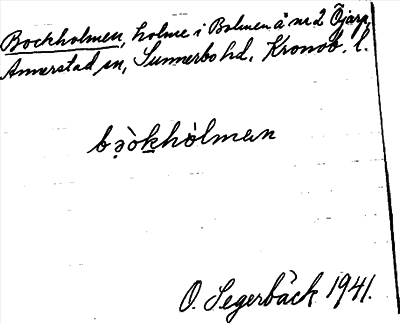 Bockholmen, holme i Bolmen å nr 2 Öjarp,
Annerstad sn, Sunnerbo hd, Kronob. l.
bə̣òkhòlmən
O. Segerbäck 1941.